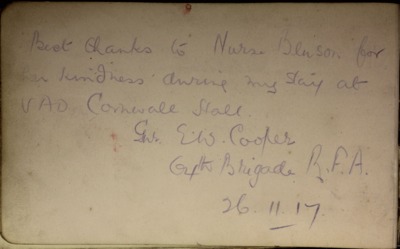 Best thanks to Nurse Denison for
her kindness during my stay at
VAD Cornwall Hall.
Gnr. E.W. Cooper
Brigade R.F.A.
26.11.17.